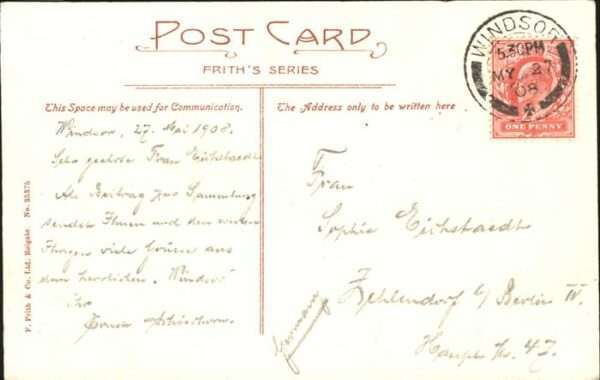 POST CARD
FRITH'S SERIES
This Space may be used for Communication.
The Address only to be written here
WINDSOR
5.30PM
MY 27
08
ONE PENNY
Windsor, 27. Mai 1908.
Sehr geehrte Frau Eichstaedt
Als Beitrag zur Sammlung
sendet Ihnen und den
Ihrigen viele Grüsse aus
dem herrlichen Windsor
Ihr
Frau
Sophie Eichstaedt
Zehlendorf b/ Berlin W.
Haupt No. 47.
Germany
F. Frith & Co. Ltd. Reigate. No. 35375